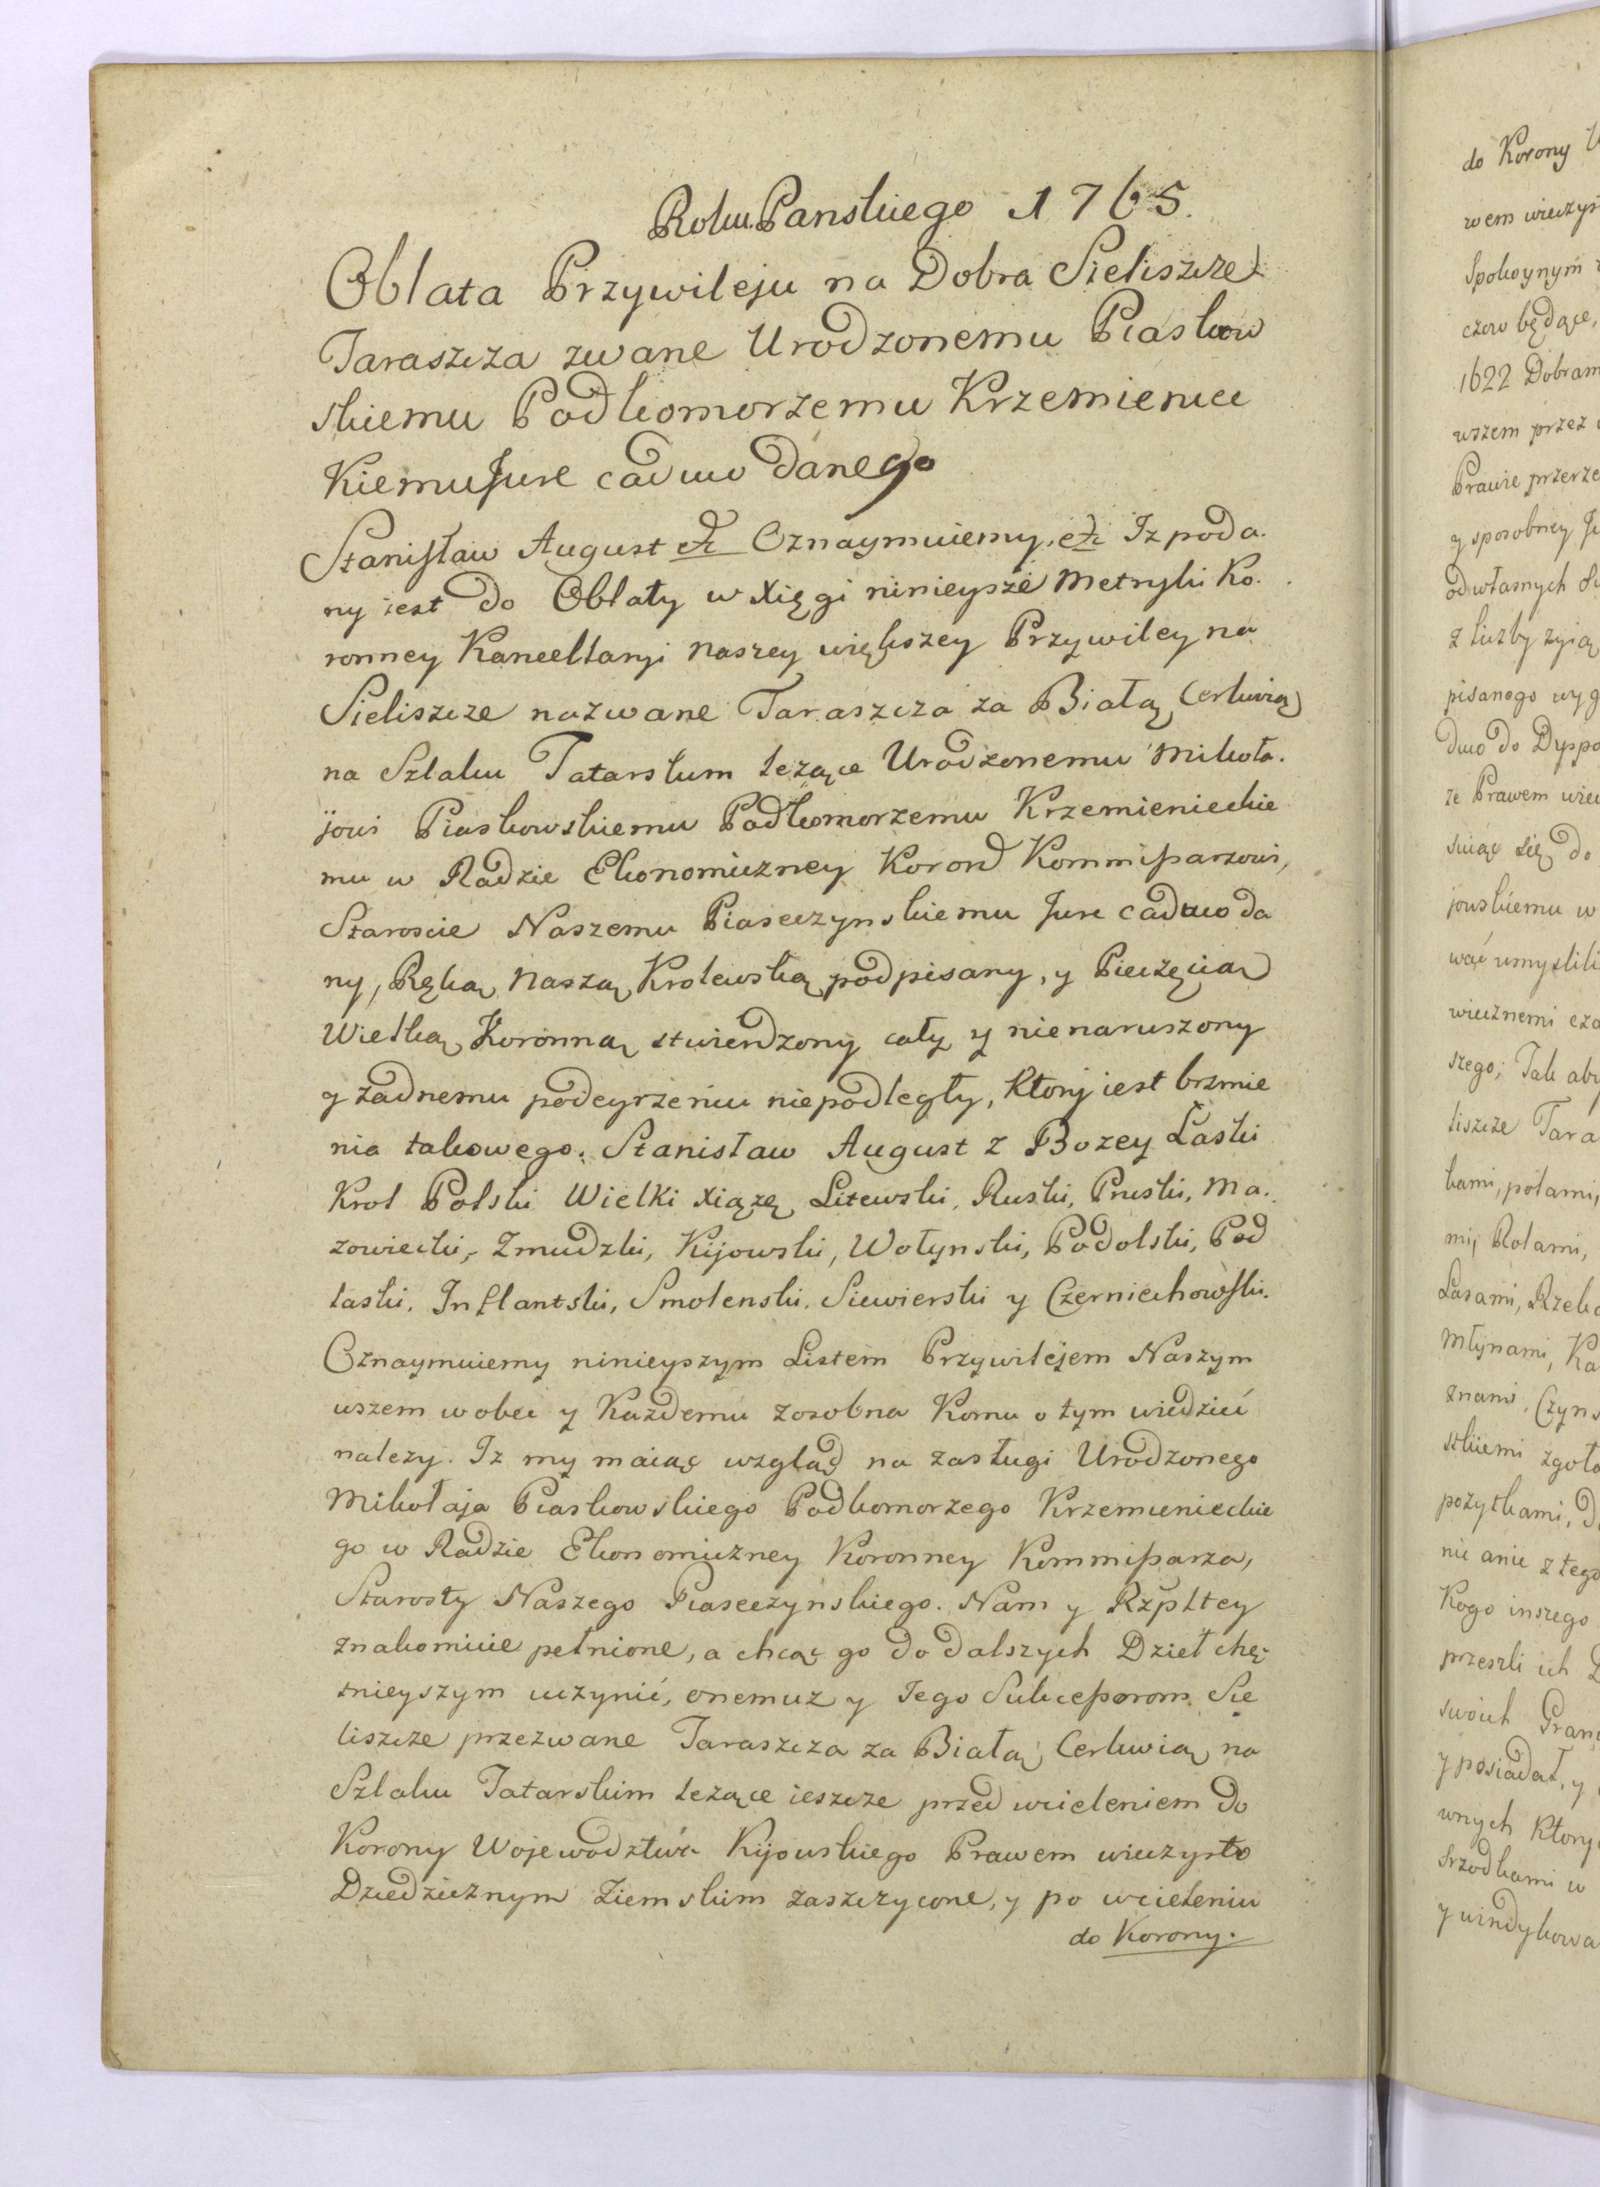 Roku Panskiego 1765.
Oblata Przywileju na Dobra Sieliszcze
Taraszcza zwane Urodzonemu Piaskow
skiemu Podkomorzemu Krzemieniec
kiemu Jure caduco danego
Stanisław August etc Oznaymuiemy, etc Iz poda.
ny iest do Oblaty w Xięgi ninieysze Metryki Ko.
ronney Kancellaryi naszey większey Przywiley na
Sieliszcze nazwane Taraszcza za Białą Cerkwią
na Szlaku Tatarskim leżące Urodzonemu Mikoła.
jowi Piaskowskiemu Podkomorzemu Krzemienieckie
mu w Radzie Ekonomiczney Koron Kommissarzowi,
Staroscie Naszemu Piaseczynskiemu Jure caduco da
ny, Ręką Naszą Krolewską podpisany, y Pieczęcią
Wielką Koronną stwierdzony cały y nienaruszony
y żadnemu podeyrzeniu niepodległy, Ktory iest brzmie
nia takowego. Stanisław August z Bozey Łaski
Krol Polski Wielki Xiążę Litewski, Ruski, Pruski, Ma.
zowiecki, Zmudzki, Kijowski, Wołynski, Podolski, Pod
laski, Inflantski, Smolenski, Siewierski y Czerniechowski.
Oznaymuiemy ninieyszym Listem Przywilejem Naszym
wszem wobec y Kazdemu zosobna Komu o tym wiedzieć
nalezy. Iz my maiąc wzgląd na zasługi Urodzonego
Mikołaja Piaskowskiego Podkomorzego Krzemienieckie
go w Radzie Ekonomiczney Koronney Kommissarza,
Starosty Naszego Piaseczynskiego. Nam y Rzpltey
znakomicie pełnione, a chcąc go do dalszych Dzieł chę.
tnieyszym uczynić, onemuz y Jego Sukcessorom Sie
liszcze przezwane Taraszcza za Białą Cerkwią na
Szlaku Tatarskim leżące ieszcze przed wcieleniem do
Korony Wojewodztwa Kijowskiego Prawem wieczysto
Dziedzicznym Ziemskim zaszczycone, y po wcieleniu
do Korony.
do Korony
wem wieczys
Spokoynym
czow będące,
1622 Dobram
wszem przez
Prawie przerze
y sposobney Ju
od własnych
z liczby zyią
pisanego wyg
dwo do Dyspo
ze Prawem wiec
siąc się do
jowskiemu w
wać umyslili
wiecznemi cza
szego; Tak aby
liszcze Tara
kami, polami,
mi, Rolami,
Lasami, Rzeka
Młynami, Ka
znami, Czyns
stkiemi zgoła
pozytkami, d
nic anie z tego
Kogo inszego
przeszli ich
swoich Grani
y posiadał, y
wnych Ktory
srzodkami w
y windykowa